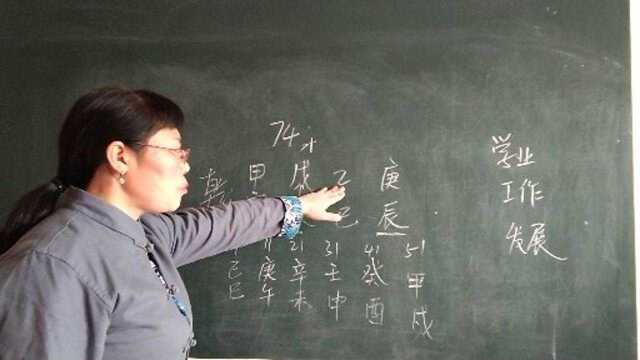 74
乾 甲 戊 乙 庚
巳 辰
11 21 31 41 51
己 庚 辛 壬 癸 甲
巳 午 未 申 酉 戌
学业
工作
发展